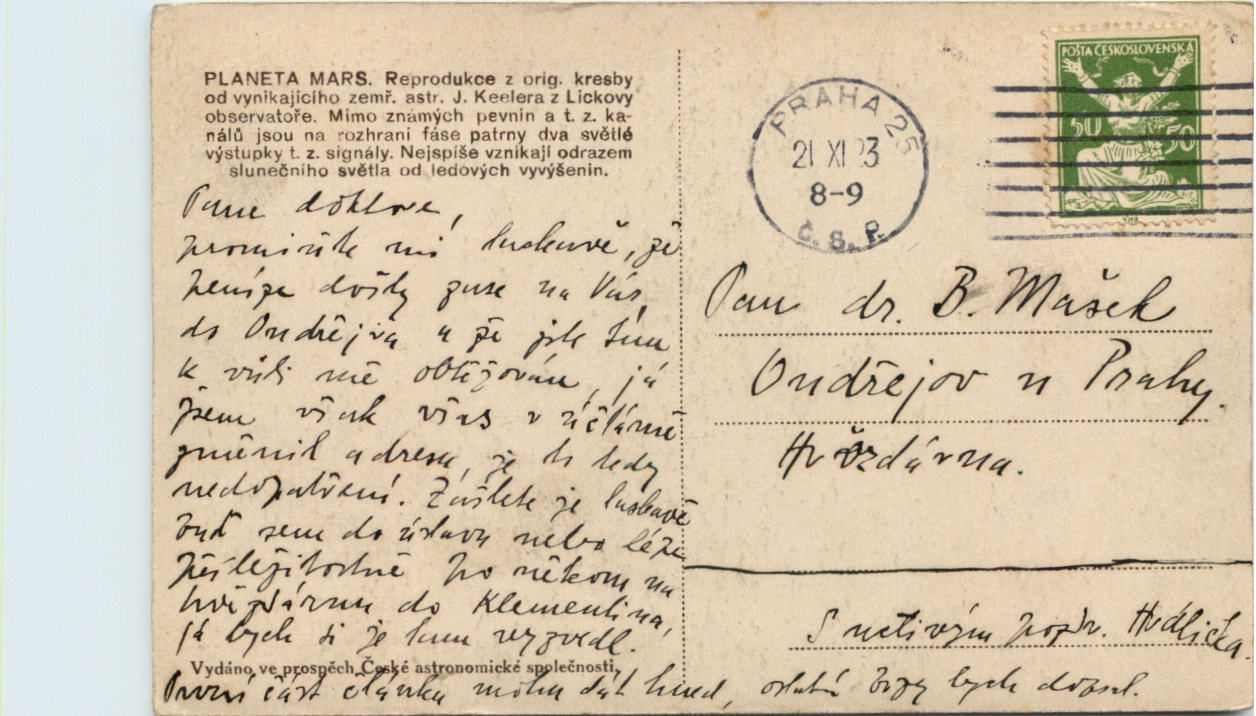 PLANETA MARS. Reprodukce z orig. kresby
od vynikajícího zemř. astr. J. Keelera z Lickovy
observatoře. Mimo známých pevnin a t. z. ka-
nálů jsou na rozhraní fáse patrny dva světlé
výstupky t. z. signály. Nejspíše vznikají odrazem
slunečního světla od ledových vyvýšenin.
Pane doktore,
promiňte mi laskavě, že
peníze došly zase na Vás
do Ondřejova a že jste tím
k vůli mě obtěžován, já
jsem však včas v účtárně
změnil adresu, je to tedy
nedopatření. Zašlete je laskavě
buď sem do ústavu nebo lépe
příležitostně po někom na
hvězdárnu do Klementina,
já bych si je tam vyzvedl.
Vydáno ve prospěch České astronomické společnosti.
První část článku mohu dát hned, ostatní bych dopsal.
PRAHA 25
21 XI 23
8-9
Č. S. P.
POŠTA ČESKOSLOVENSKÁ
50 50
Pan dr. B. Mašek
Ondřejov u Prahy.
Hvězdárna.
S uctivým pozdr. Hrdlička.